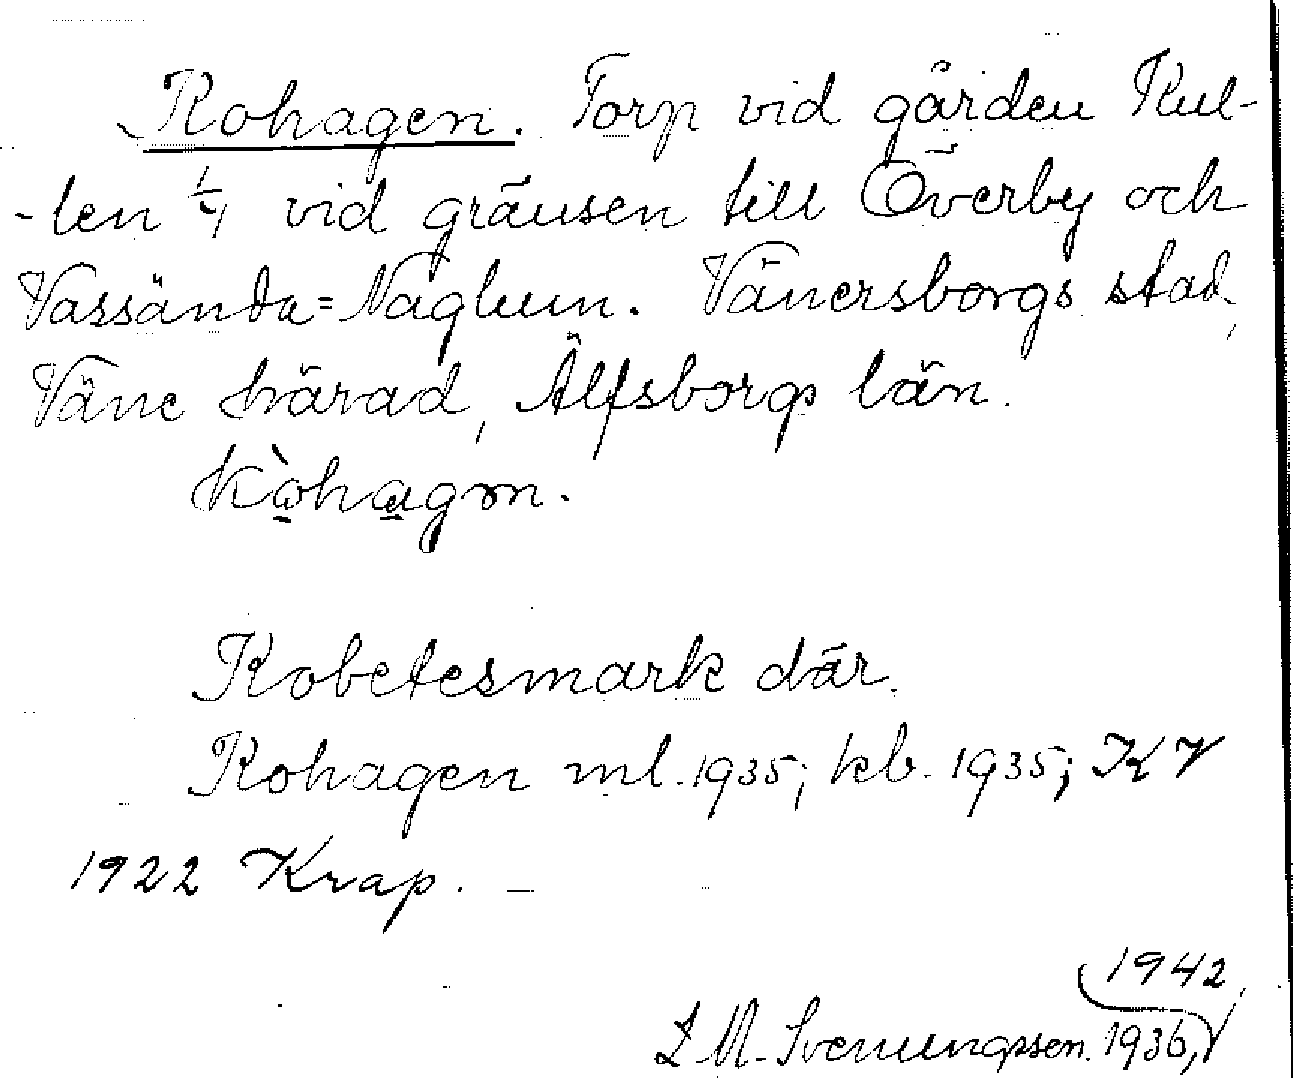 Kohagen. Torp vid gården Kul-
-len 1/4 vid gränsen till Överby och
Vassända=Naglum. Vänersborgs stad,
Väne härad, Älfsborgs län.
kòhagɷn.
Kobetesmark där.
Kohagen ml. 1935; kb. 1935; KV
1922 Krap. –
1942
L M. Svenungsson. 1936,